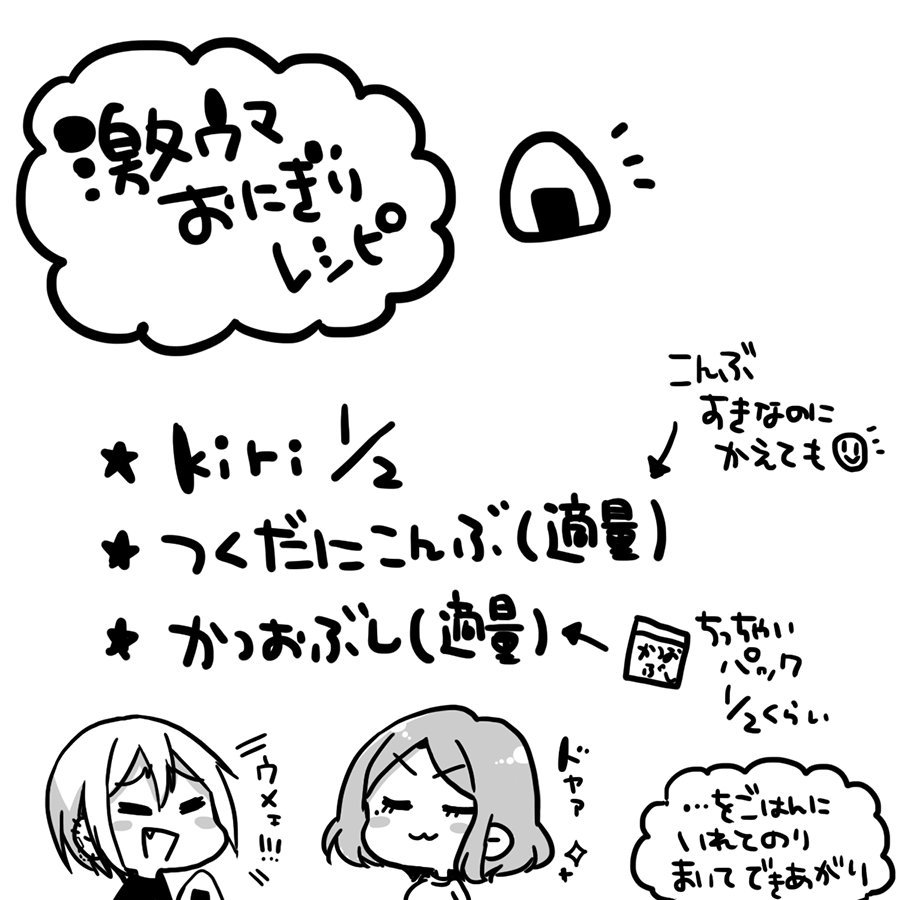 激ウマ
おにぎり
レシピ
こんぶ
すきなのに
かえても
★ kiri 1/2
★ つくだにこんぶ(適量)
★ かつおぶし(適量)
かつお
ぶし
ちっちゃい
パック
1/2くらい
ウメェ!!!
ドヤァ
…をごはんに
いれてのり
まいてできあがり